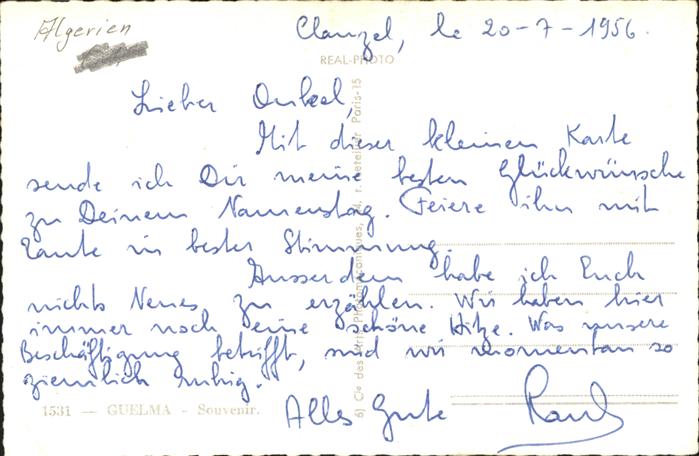 Algerien
Clauzel, le 20-7-1956.
REAL-PHOTO
Lieber Onkel,
Mit dieser kleinen Karte
sende ich Dir meine besten Glückwünsche
zu Deinem Namenstag. Feiere ihn mit
Tante in bester Stimmung.
Ausserdem habe ich Euch
nichts Neues zu erzählen. Wir haben hier
immer noch eine schöne Hitze. Was unsere
Beschäftigung betrifft, sind wir momentan so
ziemlich ruhig.
1531 — GUELMA - Souvenir.
Alles Gute
Paris-15